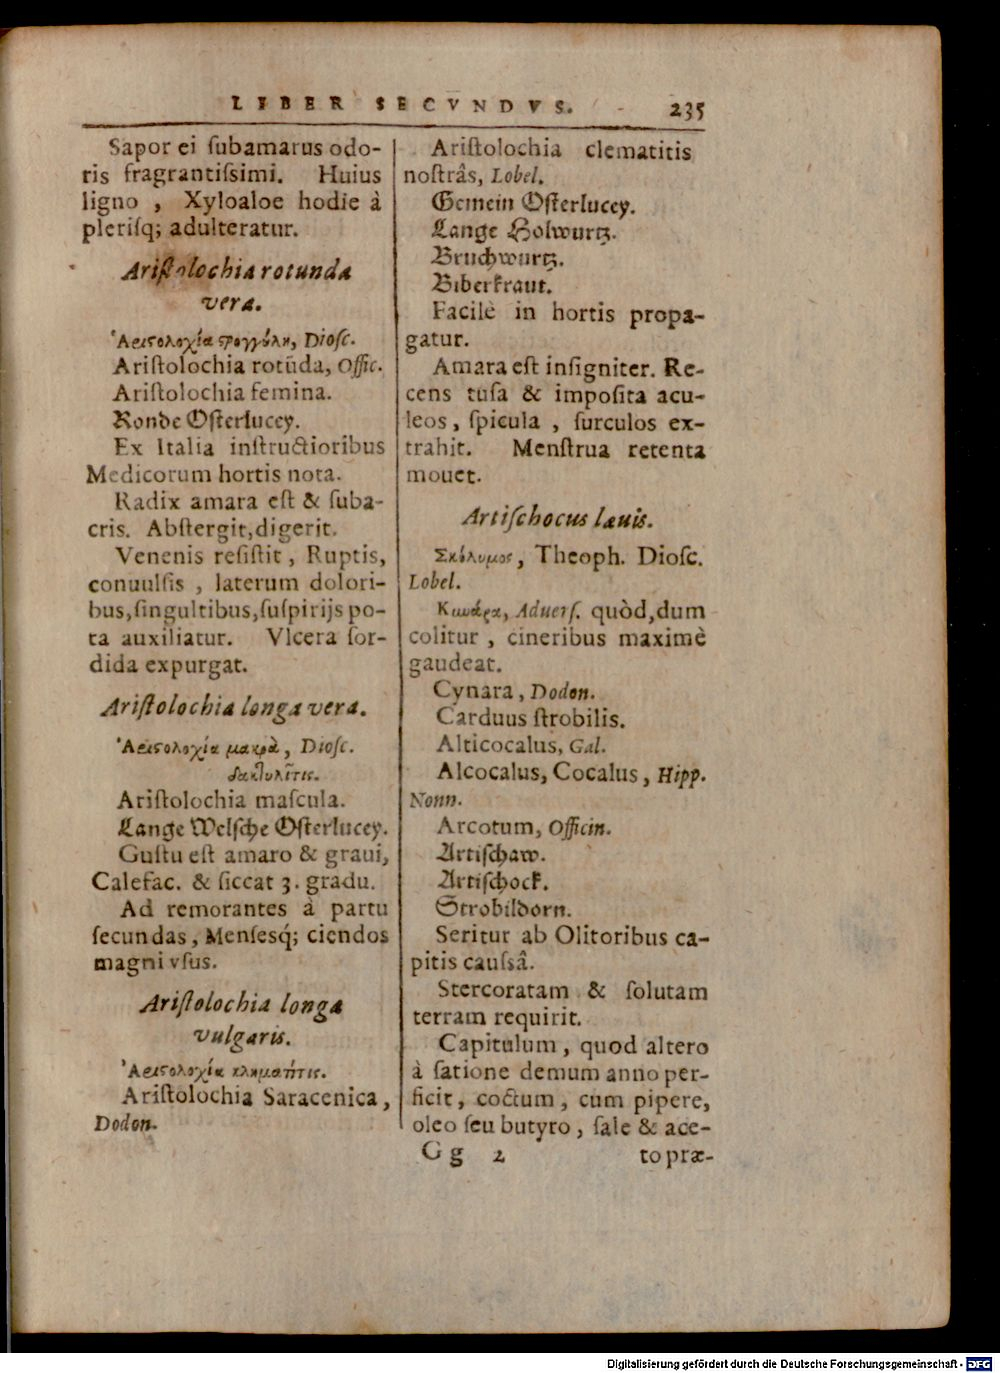 LIBER SECVNDVS. 235
Sapor ei ſubamarus odo-
ris fragrantiſsimi. Huius
ligno , Xyloaloe hodie à
pleriſq; adulteratur.
Ariſtolochia rotunda
vera.
Ἀριστολοχία στρογγύλη, Dioſc.
Ariſtolochia rotūda, Offic.
Ariſtolochia femina.
Ronde Oſterlucey.
Ex Italia inſtructioribus
Medicorum hortis nota.
Radix amara eſt & ſuba-
cris. Abſtergit,digerit.
Venenis reſiſtit , Ruptis,
conuulſis , laterum dolori-
bus,ſingultibus,ſuſpirijs po-
ta auxiliatur. Vlcera ſor-
dida expurgat.
Ariſtolochia longa vera.
Ἀριστολοχία μακρὰ, Dioſc.
δακτυλῖτις.
Ariſtolochia maſcula.
Lange Welſche Oſterlucey.
Guſtu eſt amaro & graui,
Calefac. & ſiccat 3. gradu.
Ad remorantes à partu
ſecundas , Menſesq́; ciendos
magni vſus.
Ariſtolochia longa
vulgaris.
Ἀριστολοχία κληματῖτις.
Ariſtolochia Saracenica ,
Dodon.
Ariſtolochia clematitis
noſtrâs, Lobel.
Gemein Oſterlucey.
Lange Holwurtz.
Bruchwurtz.
Biberkraut.
Facilè in hortis propa-
gatur.
Amara eſt inſigniter. Re-
cens tuſa & impoſita acu-
leos , ſpicula , ſurculos ex-
trahit. Menſtrua retenta
mouet.
Artiſchocus læuis.
Σκόλυμος , Theoph. Dioſc.
Lobel.
Κινάρα, Aduerſ. quòd,dum
colitur , cineribus maximè
gaudeat.
Cynara , Dodon.
Carduus ſtrobilis.
Alticocalus, Gal.
Alcocalus, Cocalus , Hipp.
Nonn.
Arcotum, Officin.
Artiſchaw.
Artiſchock.
Strobildorn.
Seritur ab Olitoribus ca-
pitis cauſsâ.
Stercoratam & ſolutam
terram requirit.
Capitulum , quod altero
à ſatione demum anno per-
ficit , coctum , cum pipere,
oleo ſeu butyro , ſale & ace-
G g 2 to præ-
Digitalisierung gefördert durch die Deutsche Forschungsgemeinschaft - DFG